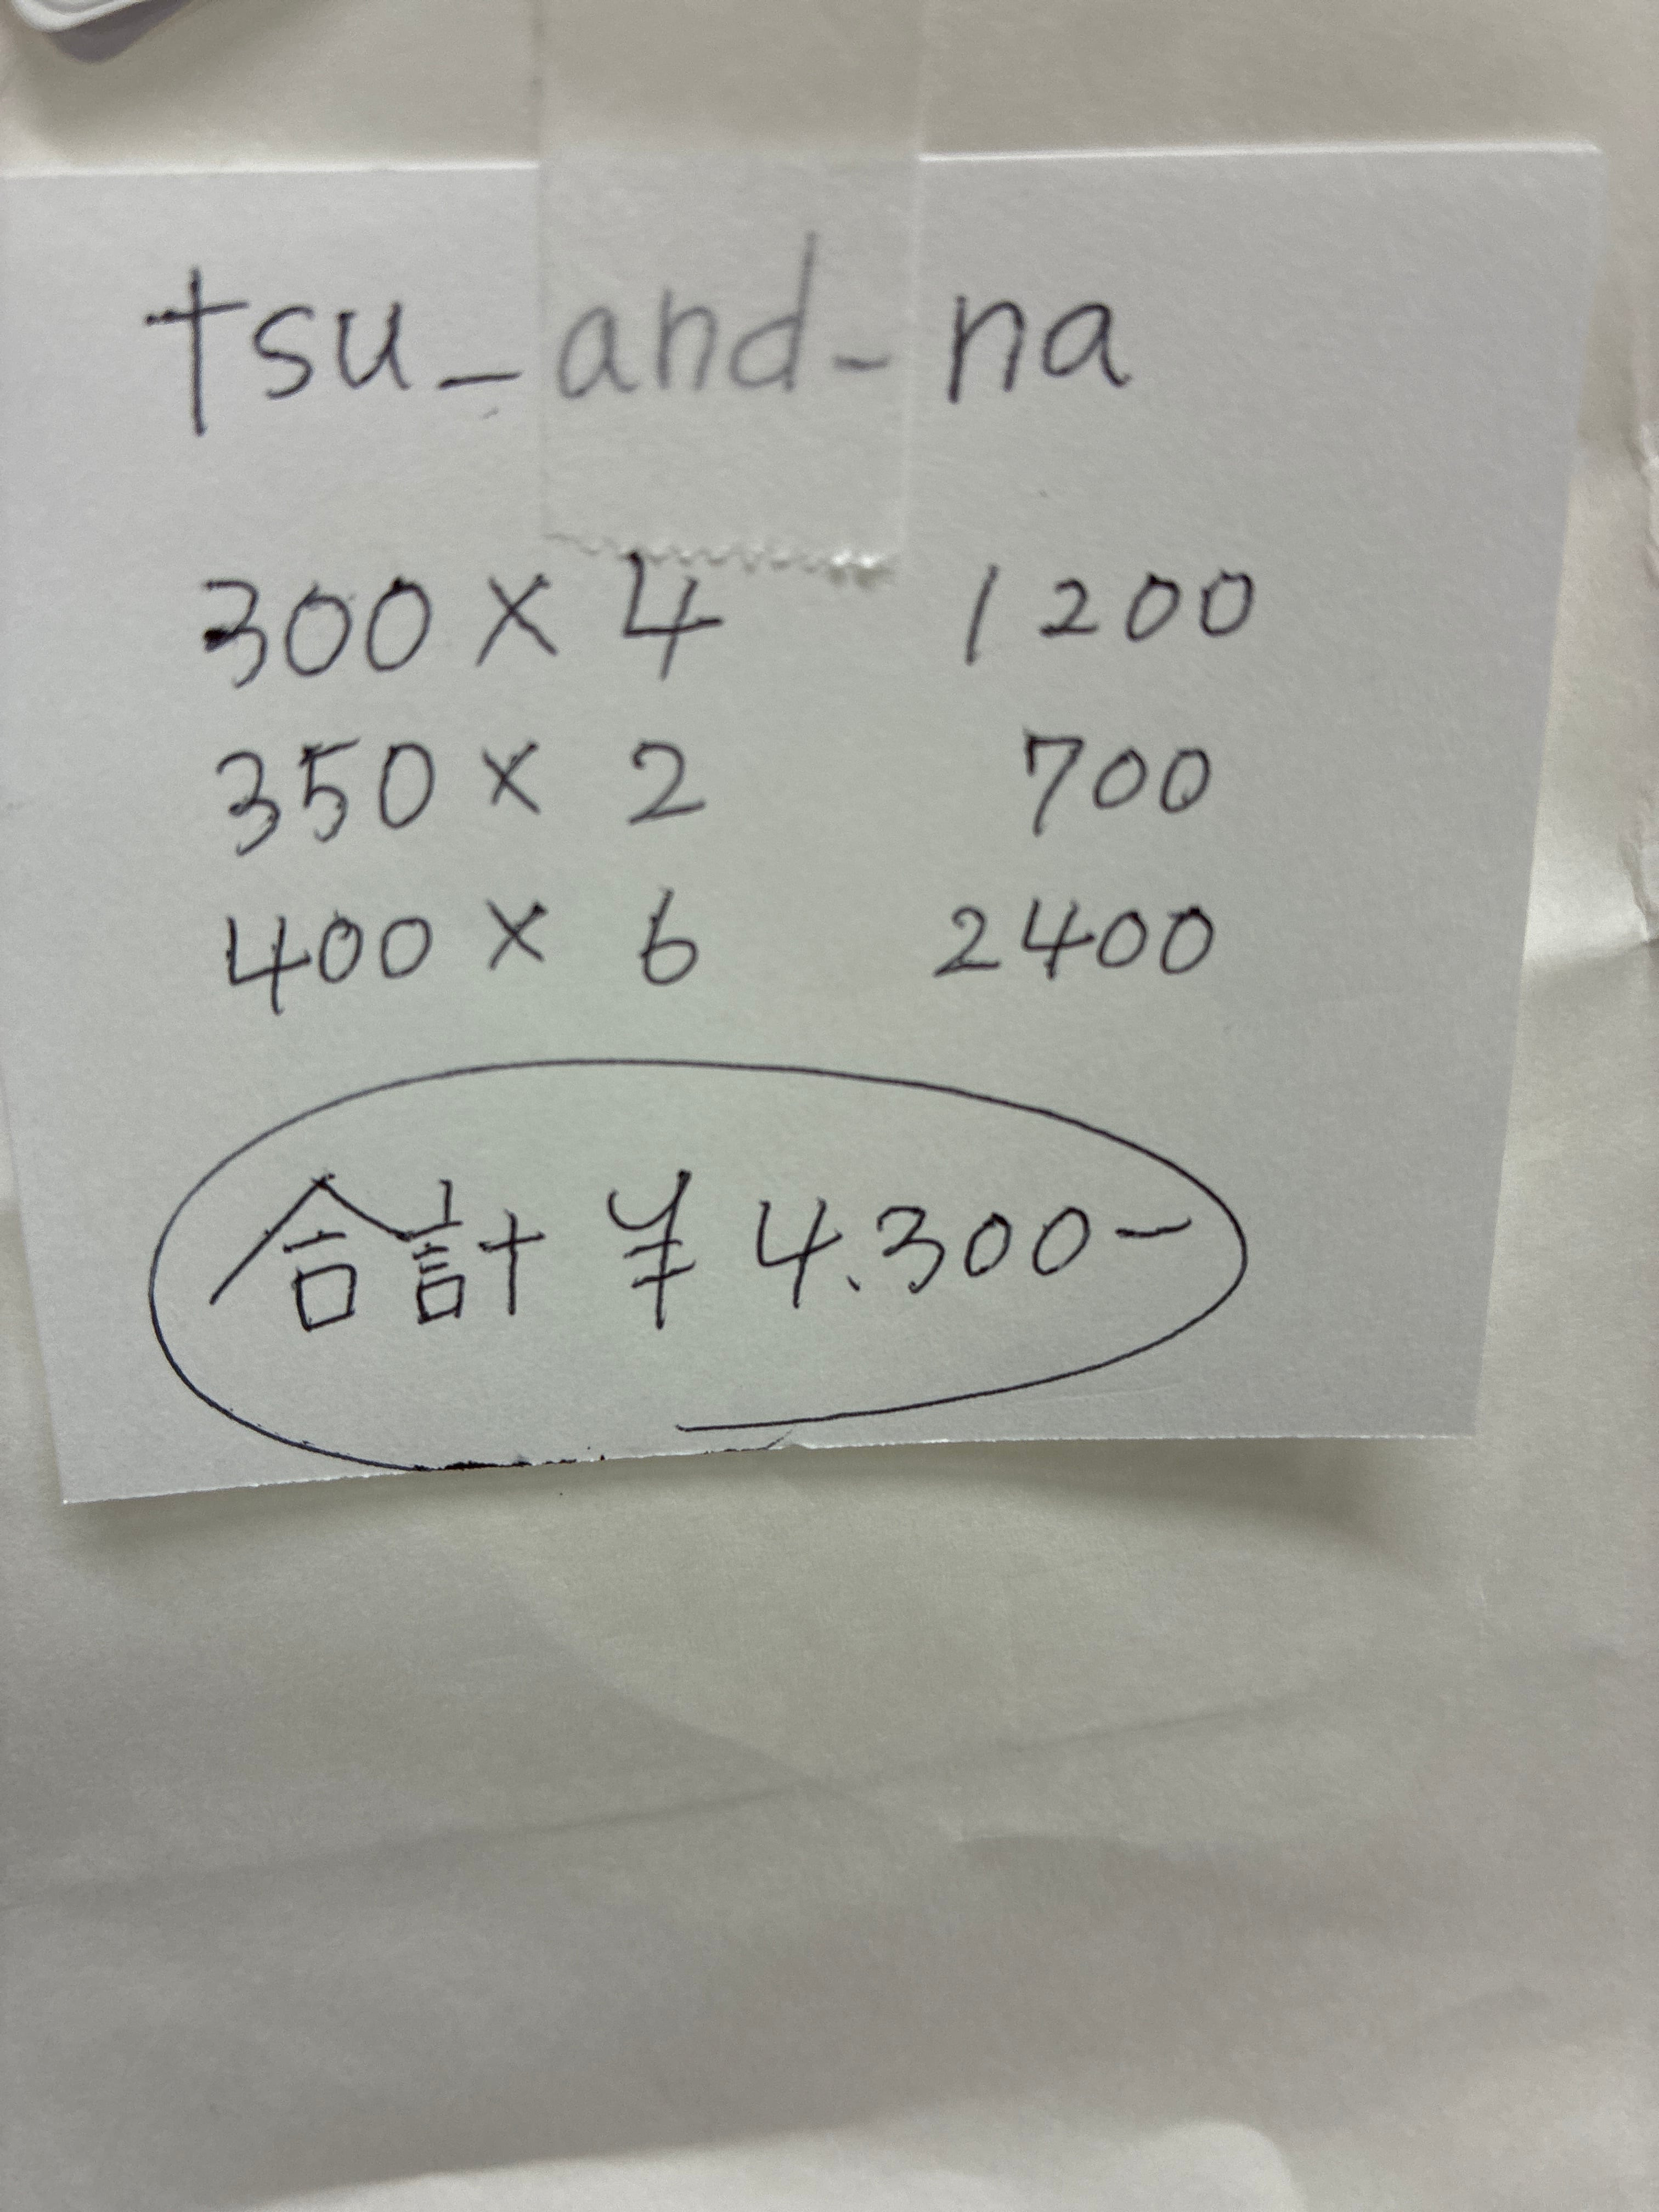 tsu_and_na
300 × 4 1200
350 × 2 700
400 × 6 2400
合計 ¥ 4.300-